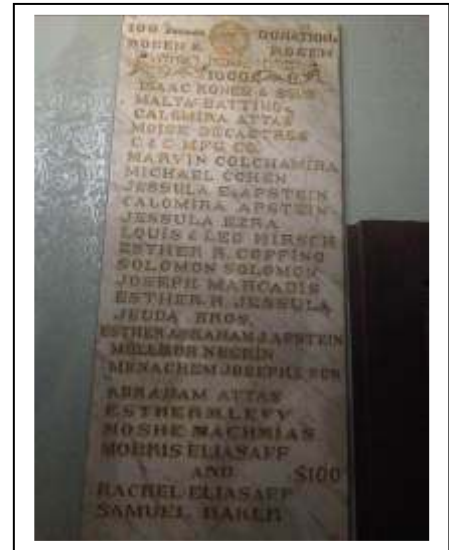 DONATIONS
ISAAC KONER & SONS
MALTA BATTINO
CALOMIRA ATTAS
MOISE DECASTRES
C & C MFG CO.
MARVIN COLCHAMIRA
MICHAEL COHEN
JESSULA E. APSTEIN
CALOMIRA APSTEIN
JESSULA EZRA
LOUIS & LEO HIRSCH
ESTHER R. COFFINO
SOLOMON SOLOMON
JOSEPH MARCADIS
ESTHER R. JESSULA
JEUDA BROS.
ESTHER ABRAHAM J. APSTEIN
NEGRIN
MENACHEM JOSEPHS
ABRAHAM ATTAS
ESTHER M. LEVY
MOSHE NACHMIAS
MORRIS ELIASAFF
AND $100
RACHEL ELIASAFF
SAMUEL BAKER